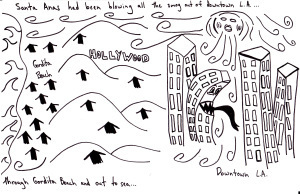 Santa Anas had been blowing all the smog out of downtown L.A...
HOLLYWOOD
Gordita
Beach
Downtown L.A.
through Gordita Beach and out to sea...